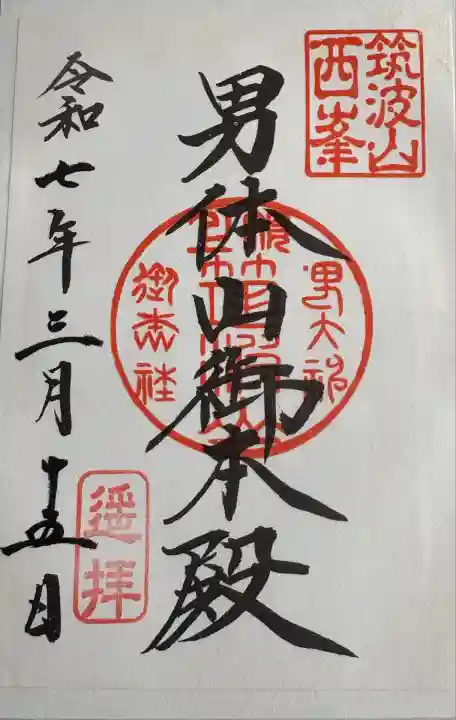 筑波山
西峯
男体山御本殿
遥拝
令和七年三月十五日